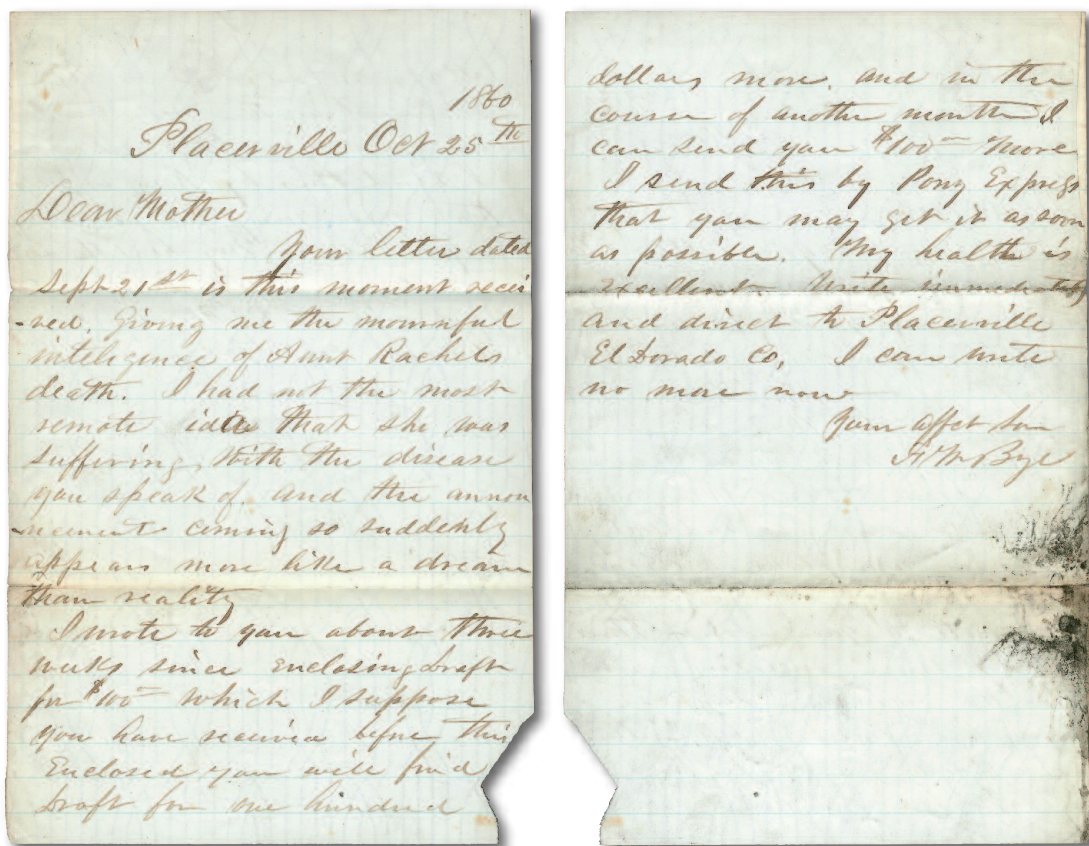 1860
Placerville Oct 25th
Dear Mother
Your letter dated
Sept 21st is this moment recei
-ved. Giving me the mournful
inteligence of Aunt Rachels
death. I had not the most
remote idea that she was
suffering with the disease
you speak of. and the annou
-ncement coming so suddenly
appears more like a dream
than reality
I wrote to you about three
weeks since enclosing draft
for $100 which I suppose
you have received before this
Enclosed you will find
draft for one hundred
dollars more. and in the
course of another month I
can send you $100 more
I send this by Pony Express
that you may get it as soon
as possible. My health is
excellent. Write immediately
and direct to Placerville
El Dorado Co, I can write
no more now
Your affet son
Bye